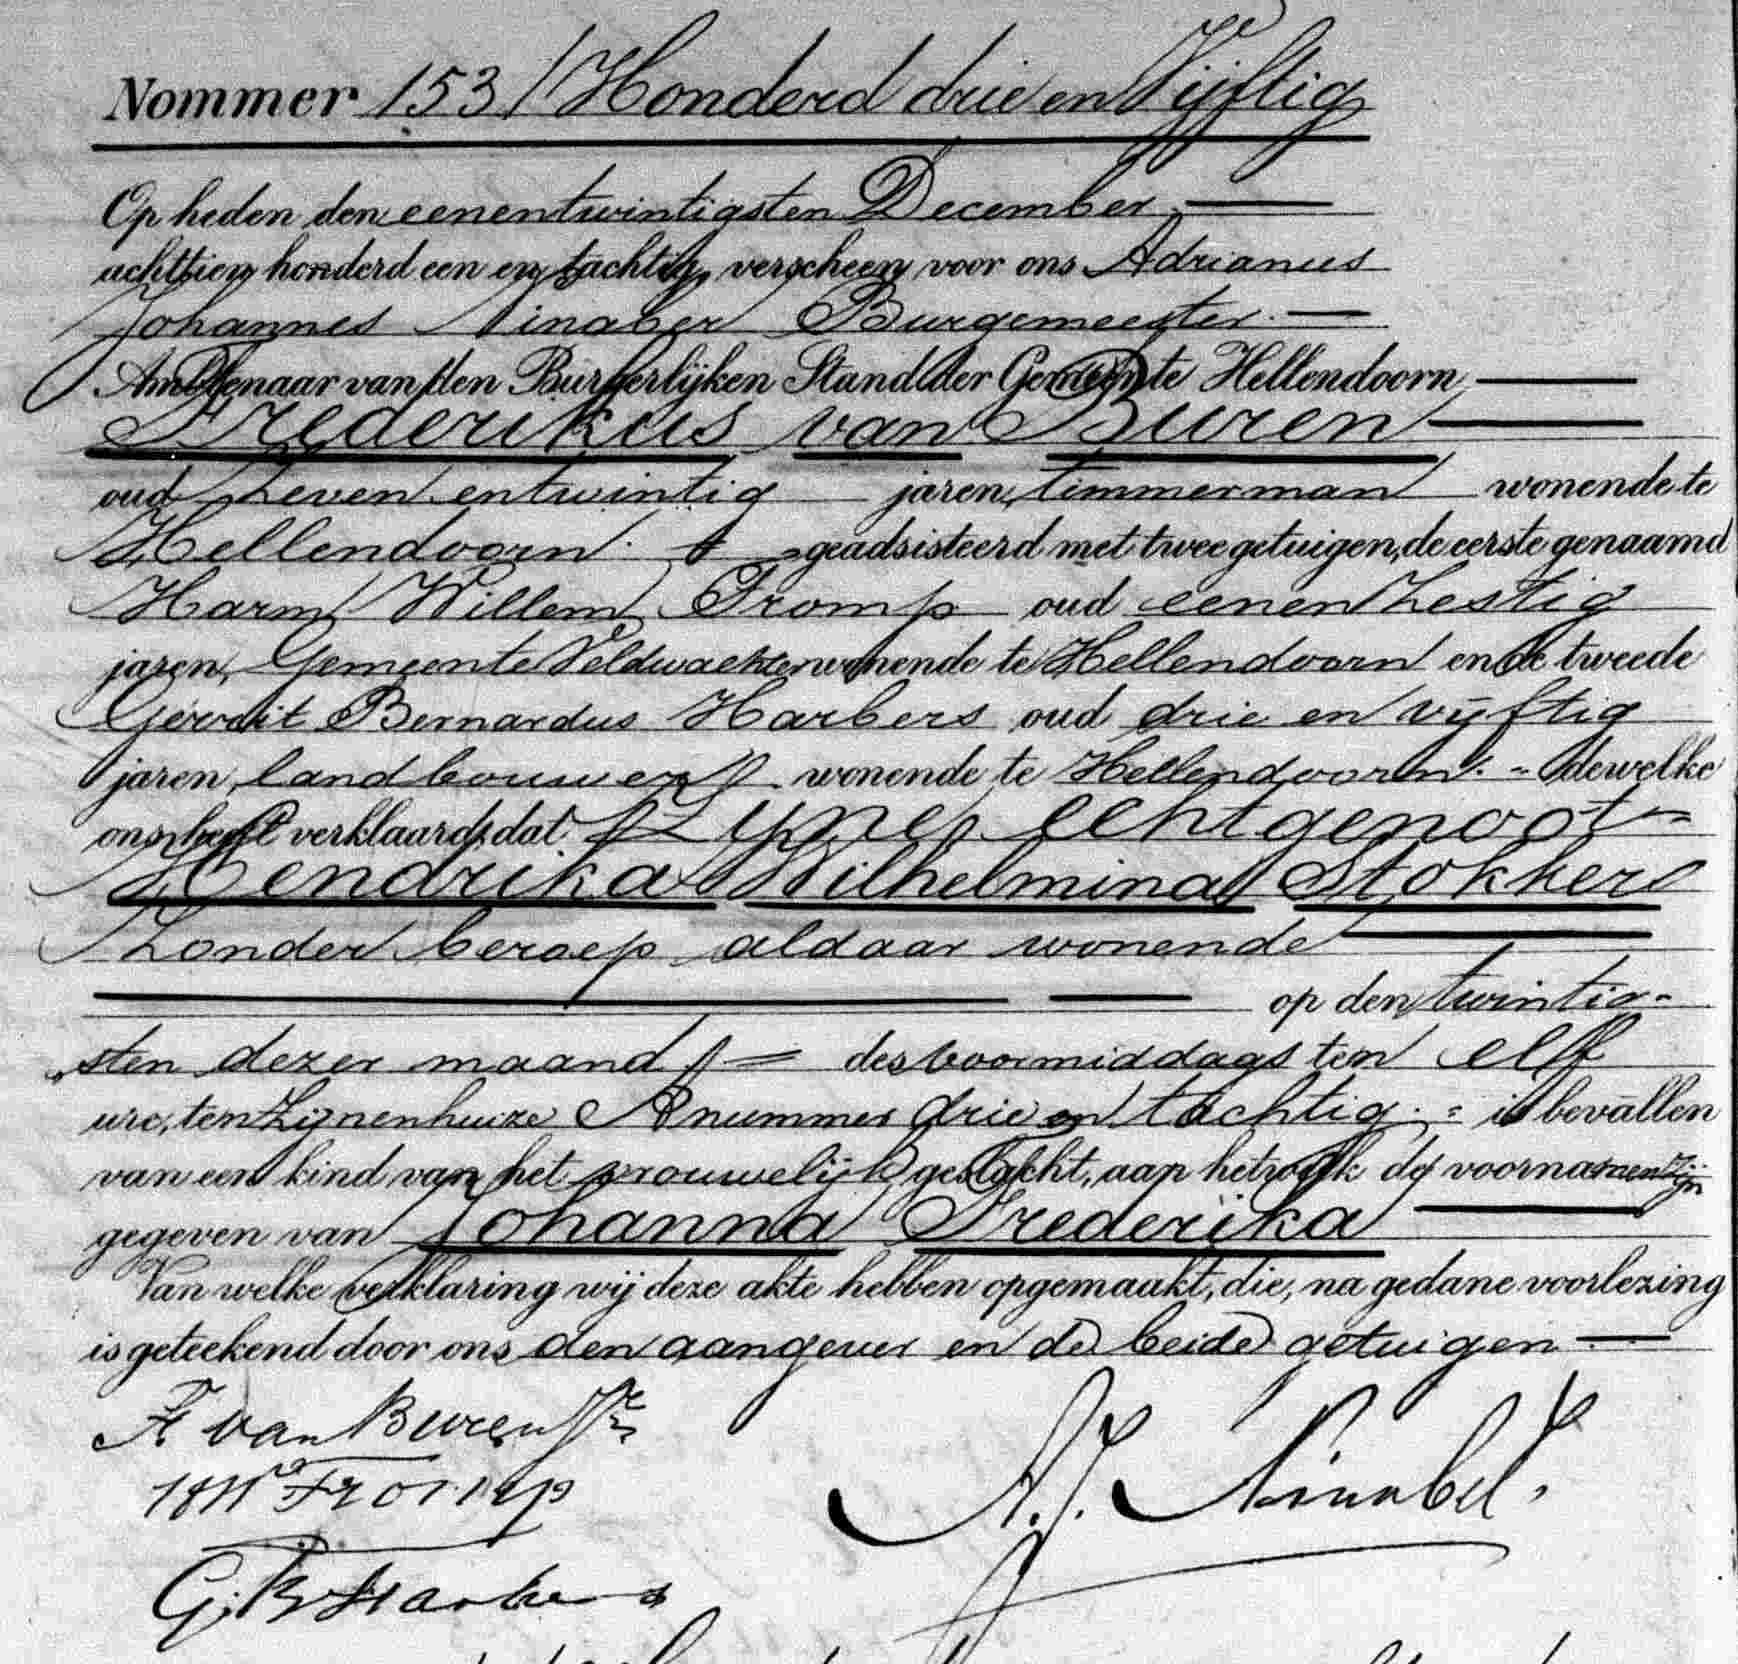 Nommer 153 / Honderd drie en Vijftig
Op heden den eenentwintigsten December
achttien honderd een en tachtig, verscheen voor ons Adrianus
Johannes Ninaber Burgemeester
Ambtenaar van den Burgerlijken Stand der Gemeente Hellendoorn
Frederikus van Buren
oud Zeven entwintig jaren, timmerman wonende te
Hellendoorn geadsisteerd met twee getuigen, de eerste genaamd
Harm Willem Tromp oud eenenzestig
jaren, Gemeente Veldwachter wonende te Hellendoorn en de tweede
Gerrit Bernardus Harbers oud drie en vijftig
jaren, landbouwer wonende te Hellendoorn. dewelke
ons heeft verklaard, dat Zijne echtgenoot
Hendrika Wilhelmina Stokkers
Zonder beroep aldaar wonende
op den twintig-
sten dezer maand des voormiddags ten elf
ure, ten Zijnenhuize A nummer drie en tachtig. is bevallen
van een kind van het vrouwelijk geslacht, aan hetwelk de voornamen zijn
gegeven van Johanna Frederika
Van welke verklaring wij deze akte hebben opgemaakt, die, na gedane voorlezing
is geteekend door ons den aangever en de beide getuigen
F van Buren Jr
HW Tromp
A. J. Ninaber
G. B Harbers